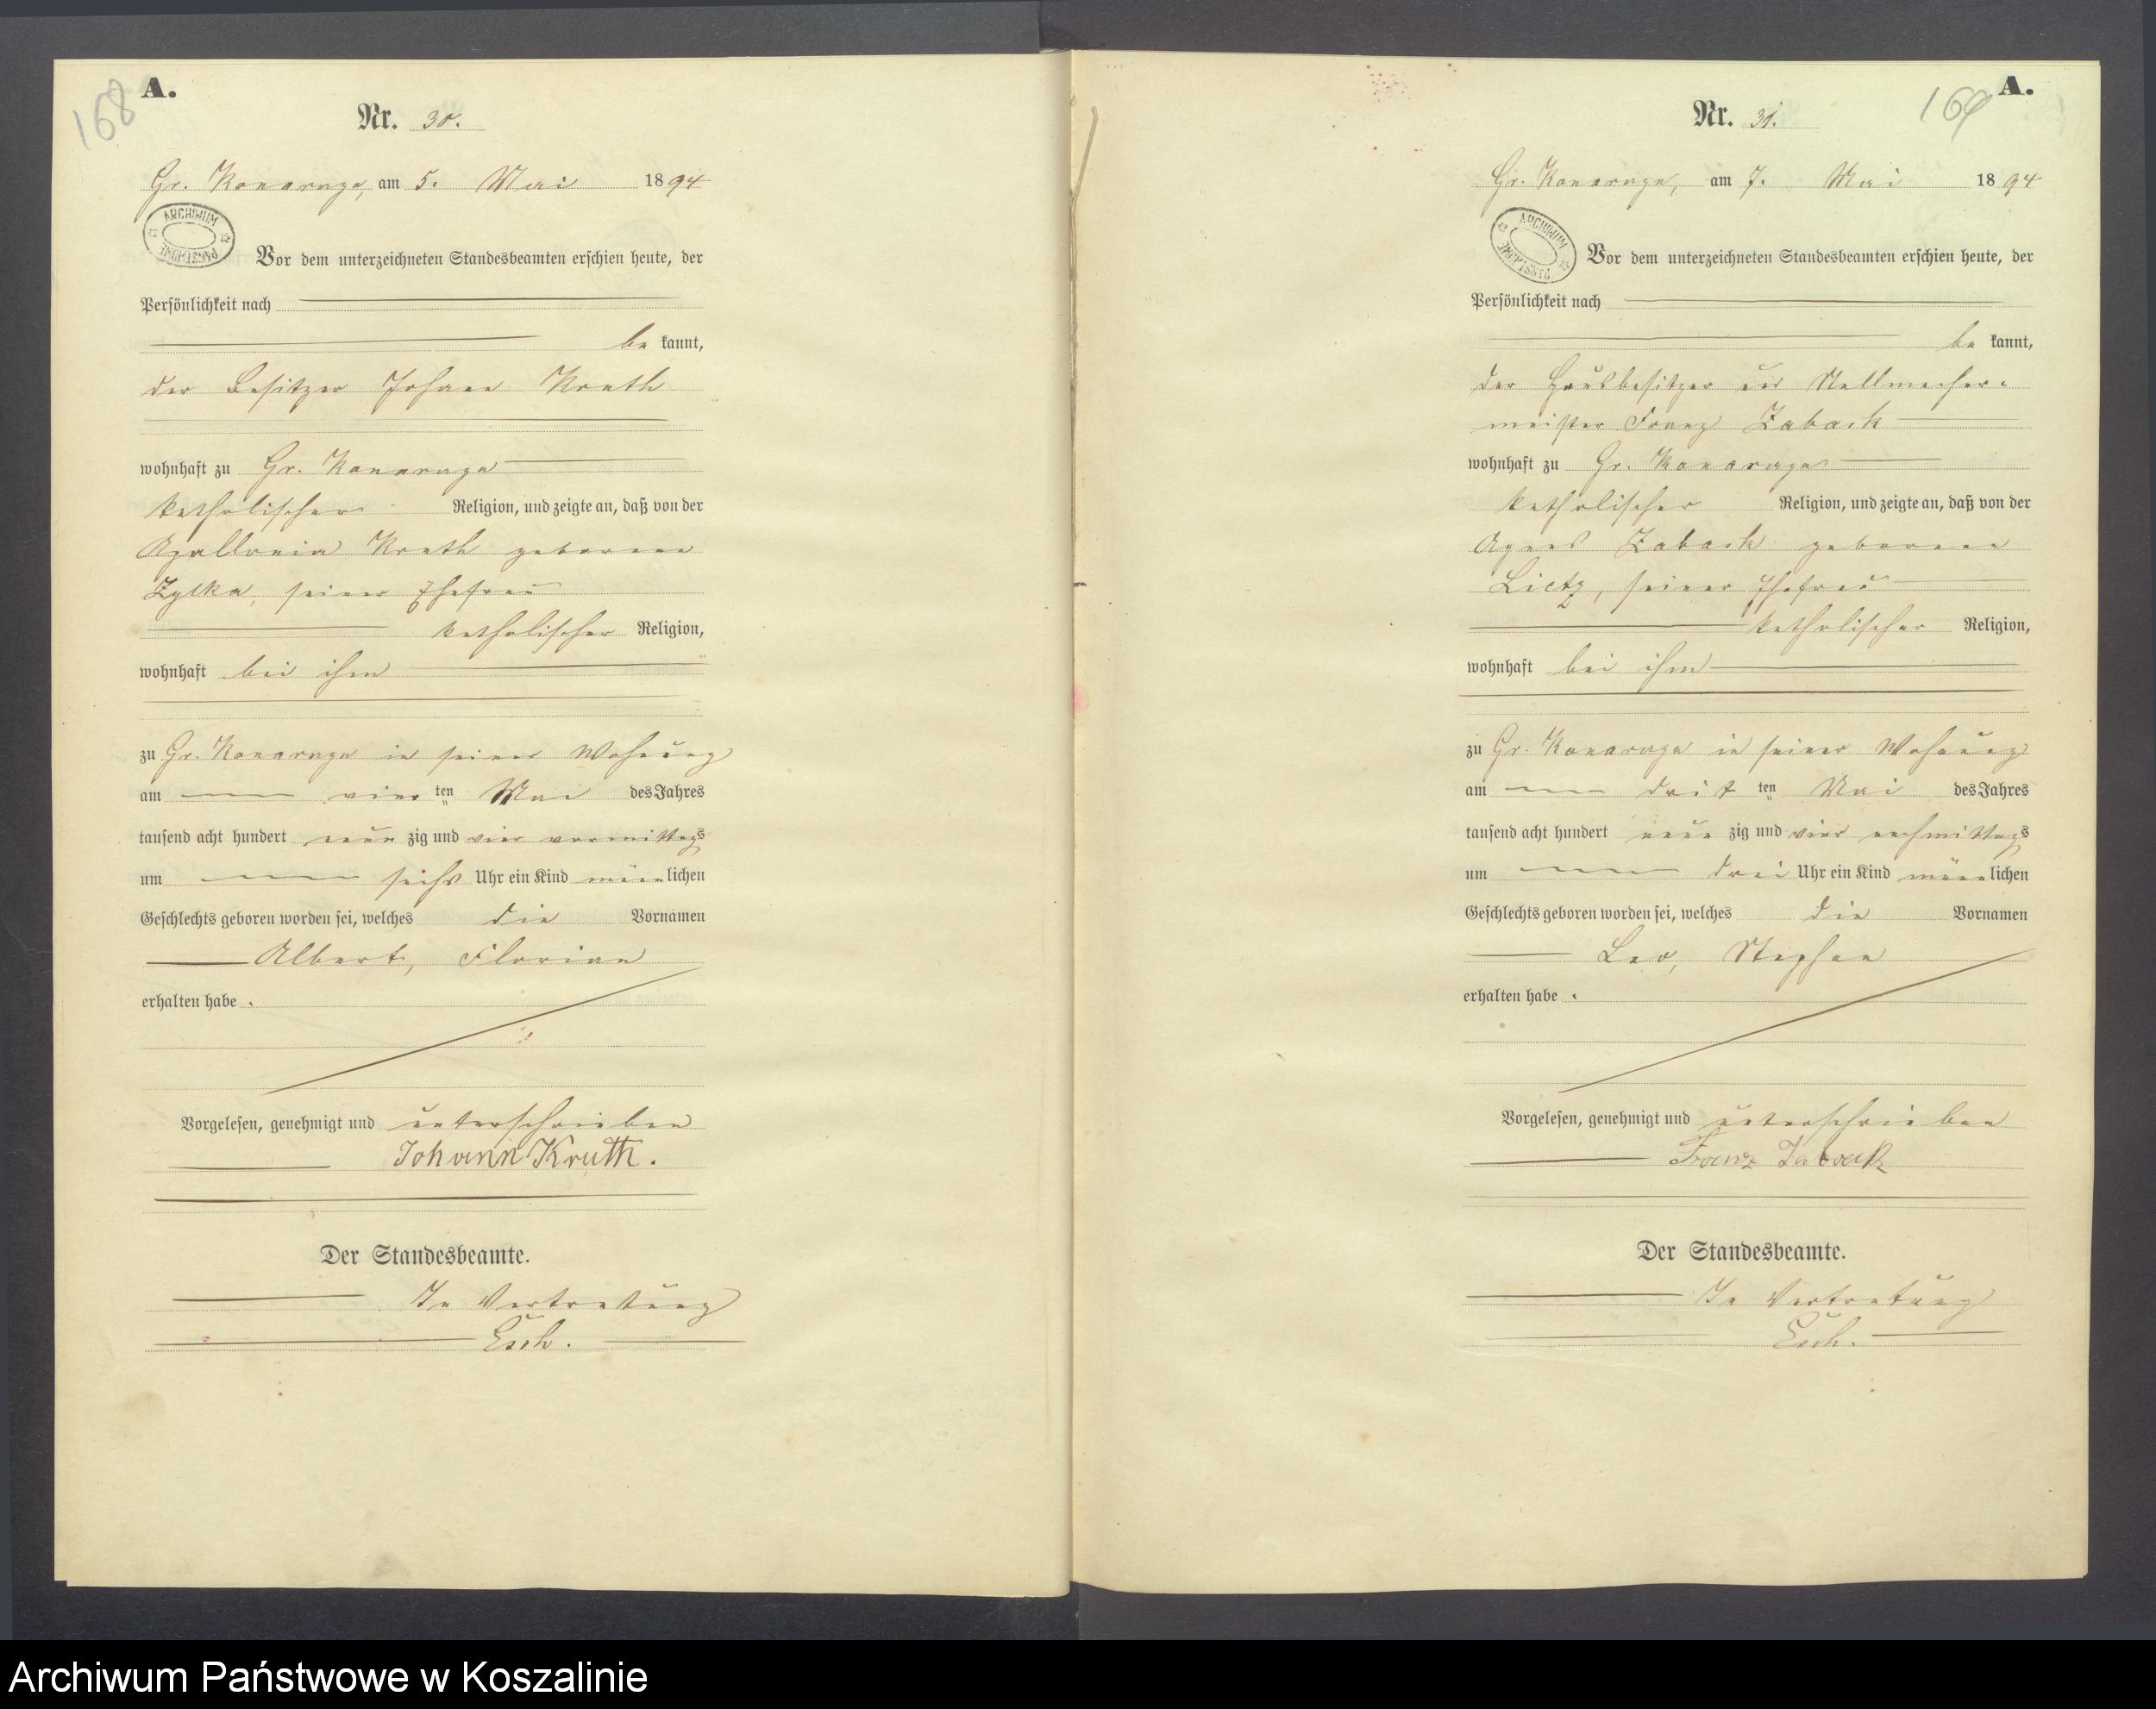 168
A.
Nr. 30.
Gr. Konarczyn, am 5. Mai 1894
ARCHIWUM PAŃSTWOWE
Vor dem unterzeichneten Standesbeamten erschien heute, der
Persönlichkeit nach
be kannt,
der Besitzer Johann Kruth
wohnhaft zu Gr.
katholischer Religion, und zeigte an, daß von der
Apollonia Kruth geborene
Zylka, seiner Ehefrau
katholischer Religion,
wohnhaft bei ihm
zu Gr. in seiner Wohnung
am vier ten Mai des Jahres
tausend acht hundert neun zig und vier vormittags
um sechs Uhr ein Kind männlichen
Geschlechts geboren worden sei, welches die Vornamen
Albert, Florian
erhalten habe.
Vorgelesen, genehmigt und unterschrieben
Johann Kruth.
Der Standesbeamte.
In Vertretung
Esch.
169
A.
Nr. 31.
Gr. am 7. Mai 1894
ARCHIWUM PAŃSTWOWE
Vor dem unterzeichneten Standesbeamten erschien heute, der
Persönlichkeit nach
be kannt,
der Hausbesitzer und Stellmacher-
meister Franz Zaback
wohnhaft zu Gr.
katholischer Religion, und zeigte an, daß von der
Agnes Zaback geborene
Lietz, seiner Ehefrau
katholischer Religion,
wohnhaft bei ihm
zu Gr. in seiner Wohnung
am drit ten Mai des Jahres
tausend acht hundert neun zig und vier nachmittags
um drei Uhr ein Kind männlichen
Geschlechts geboren worden sei, welches die Vornamen
Leo, Stephan
erhalten habe.
Vorgelesen, genehmigt und unterschrieben
Franz Zaback
Der Standesbeamte.
In Vertretung
Esch.
Archiwum Państwowe w Koszalinie